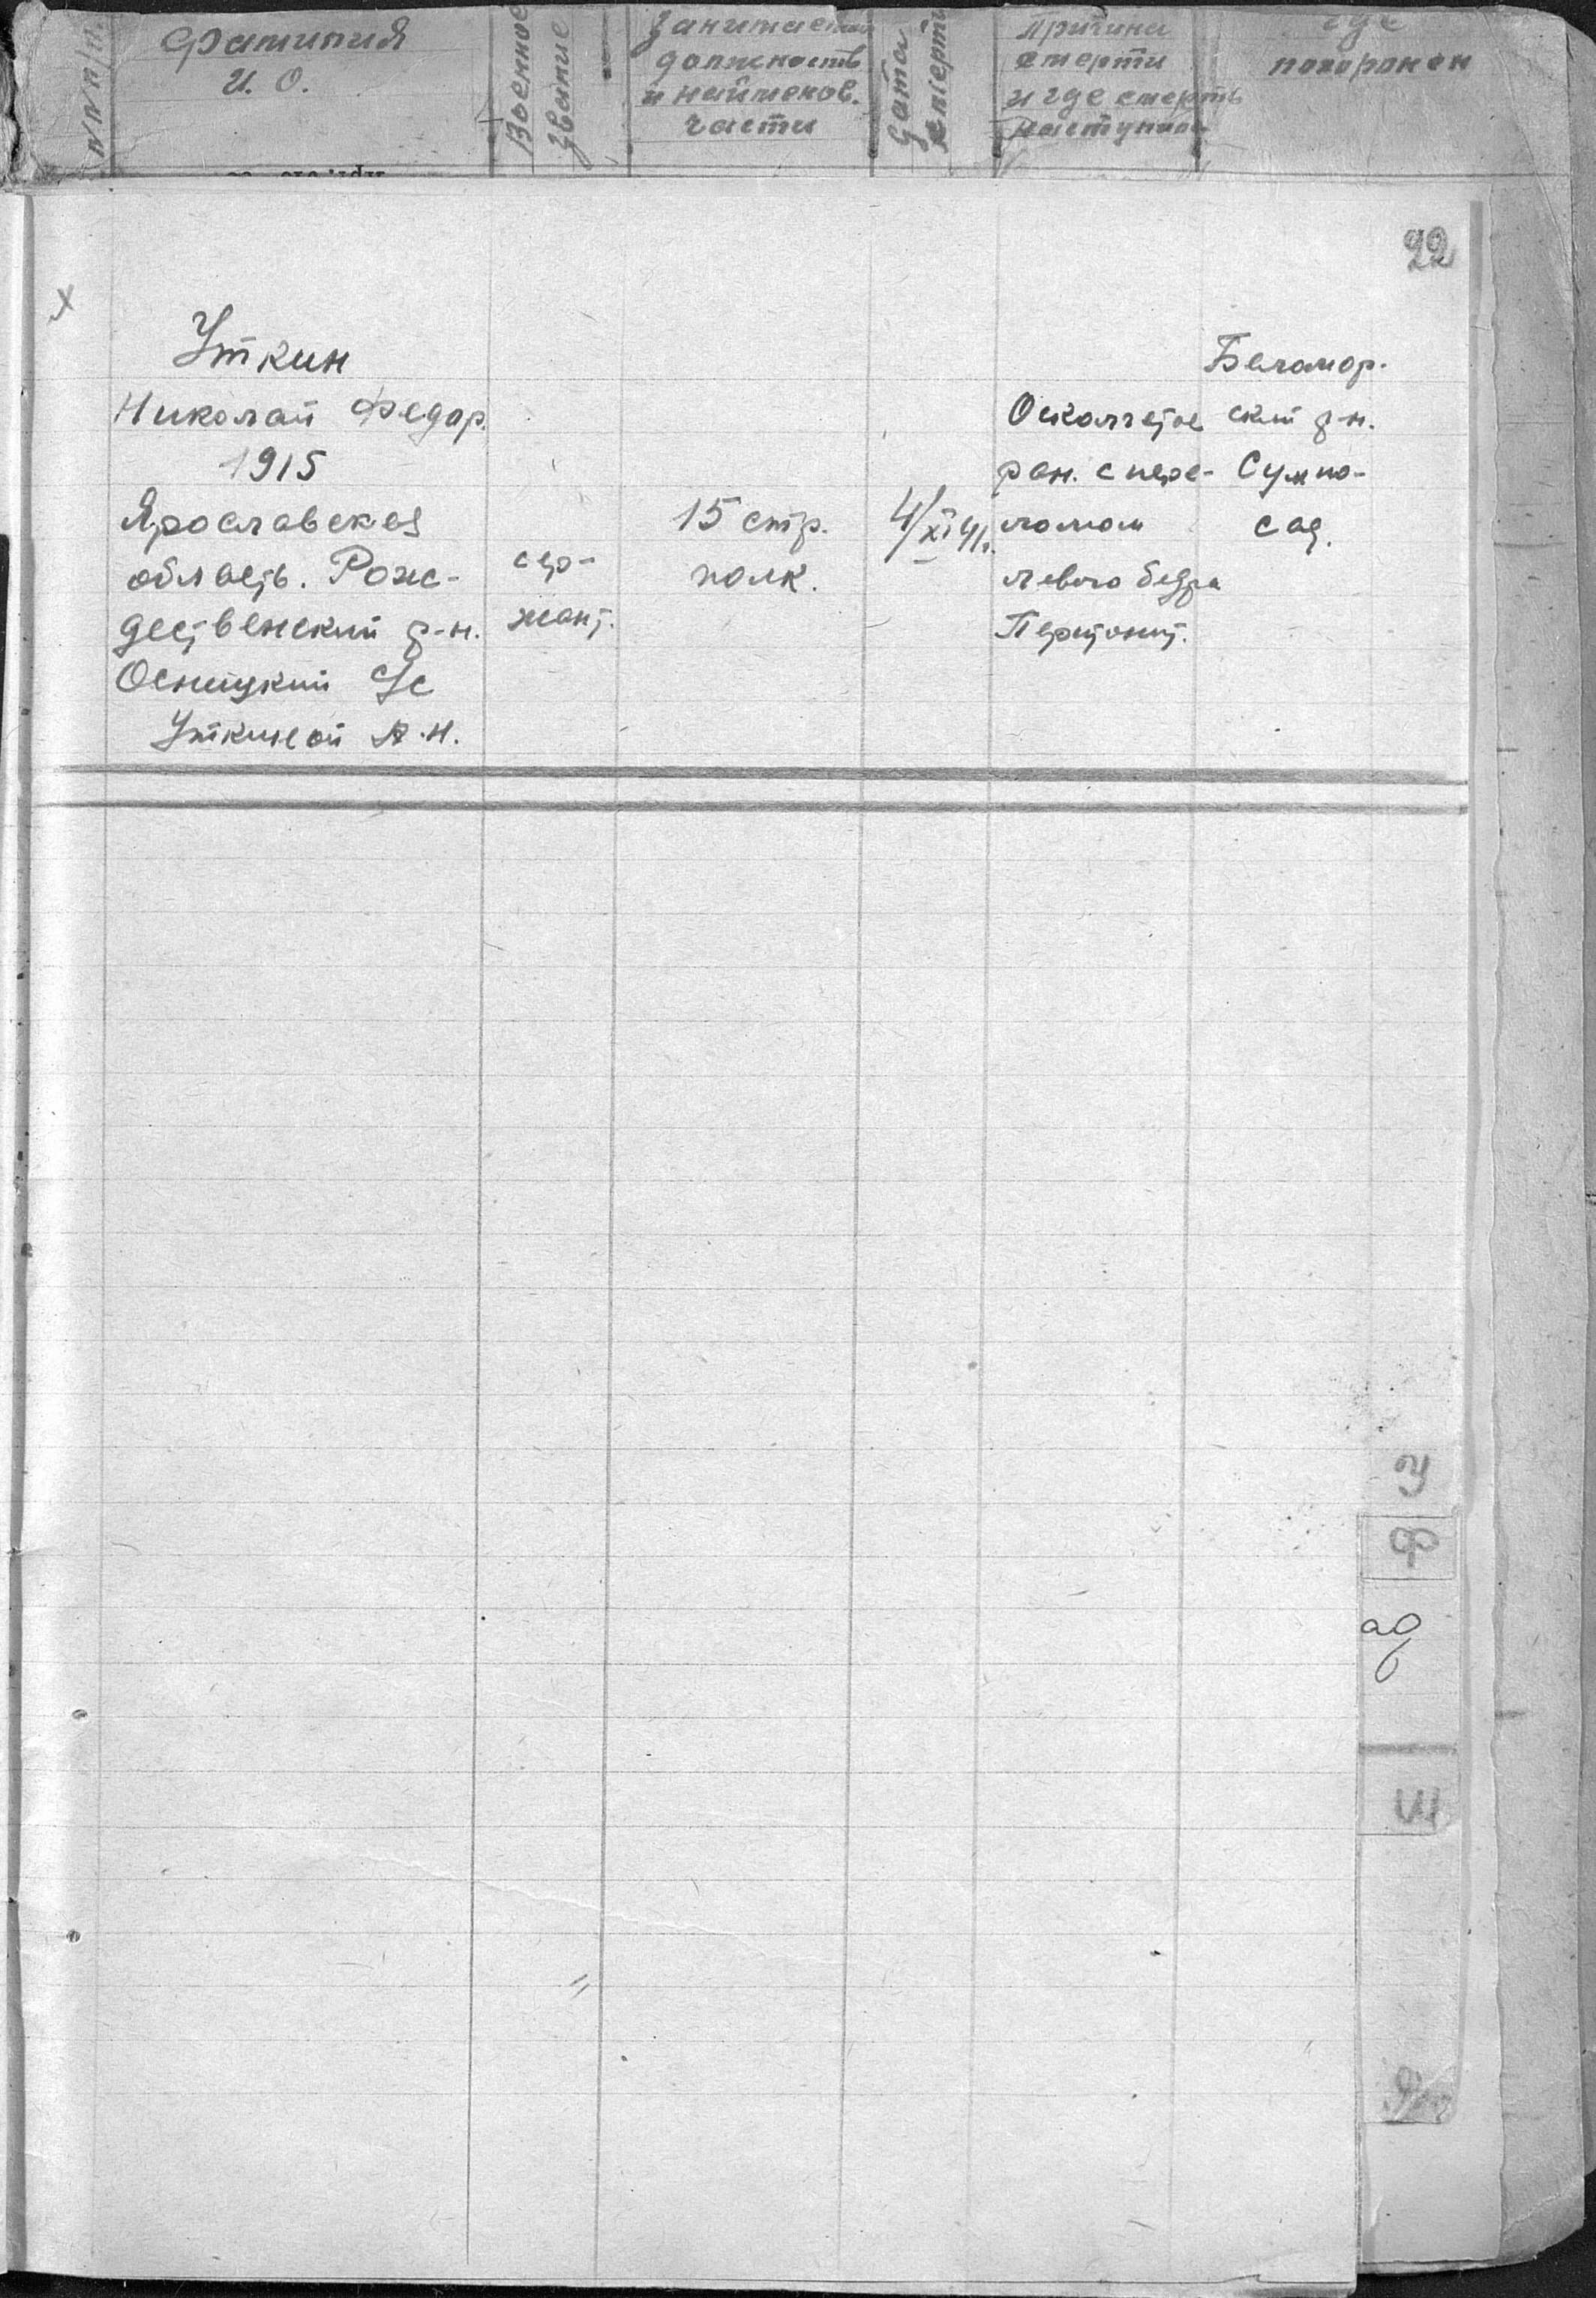 № п/п.
Фамилия
И. О.
Военное
звание
Занимаем.
должность
и наименов.
части
Дата
смерти
Причина
смерти
и где смерть
наступила
где
похоронен
22
х
Уткин
Николай Федор.
1915
Ярославская
область. Рож-
дественский р-н.
Осницкий с/с
Уткиной А.Н.
сер-
жант.
15 стр.
полк.
4/XI 41г.
Осколчатое
ран. с пере-
ломом
левого бедра
Перитонит.
Беломор.
ский р-н.
Сумпо-
сад.
У
Ф
Ш